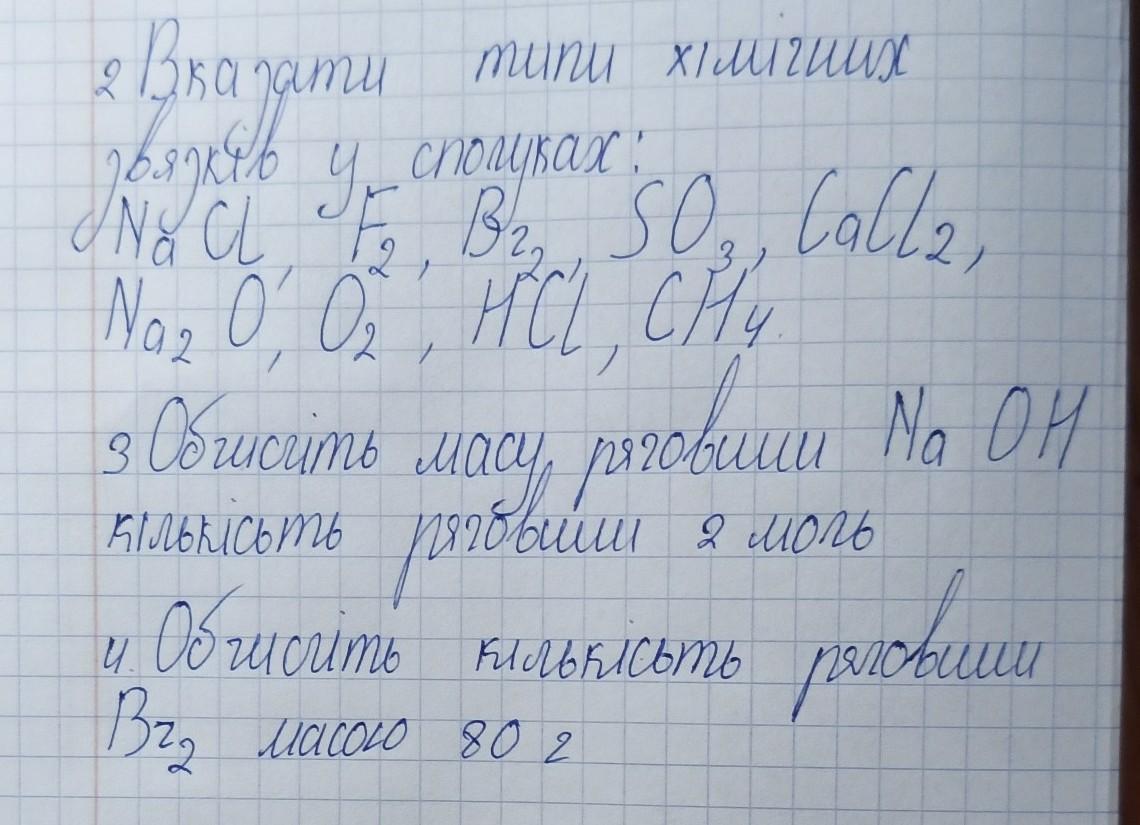 2 Вказати типи хімічних
звязків у сполуках:
NaCl, F₂, Br₂, SO₃, CaCl₂,
Na₂O, O₂, HCl, CH₄.
3 Обчисліть масу речовини NaOH
кількість речовини 2 моль
4. Обчисліть кількість речовини
Br₂ масою 80 г